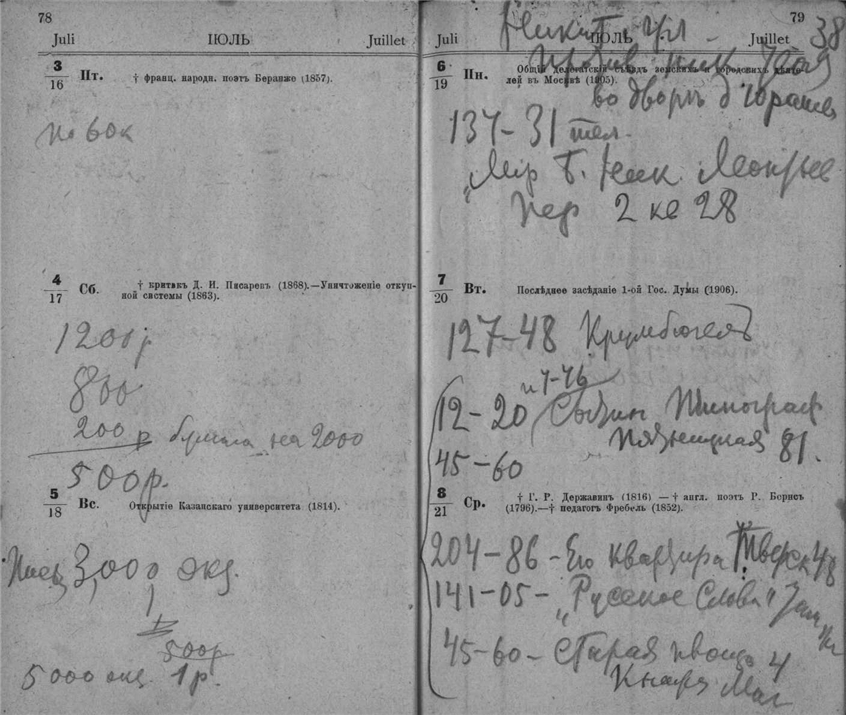 78
Juli ІЮЛЬ Juillet
3/16 Пт. † франц. народн. поэтъ Беранже (1857).
по 60к
4/17 Сб. † критикъ Д. И. Писаревъ (1868).—Уничтоженіе откуп-
ной системы (1863).
1200р
800
200 р бумага на 2000
500р.
5/18 Вс. Открытіе Казанскаго университета (1814).
3,000 экз.
1
500р
5000 экз. 1р.
79
Juli ІЮЛЬ Juillet
Никит ул 38
против ник
во дворѣ
6/19 Пн. Общій делегатскій съѣздъ земскихъ и городскихъ дѣяте-
лей въ Москвѣ (1905).
137-31 тел.
„Мір Б. Ник. Леонтьев
пер 2 кв 28
7/20 Вт. Послѣднее засѣданіе 1-ой Гос. Думы (1906).
127-48 Крумбюгель
и 4-46
12-20 Сытин Типограф
Пятницкая 81.
45-60
8/21 Ср. † Г. Р. Державинъ (1816) — † англ. поэтъ Р. Борнсъ
(1796).—† педагогъ Фребель (1852).
204-86 - Его квартира Тверск 48
141-05 - „Русское Слово"
45-60 - Старая площ 4
Княж Маг